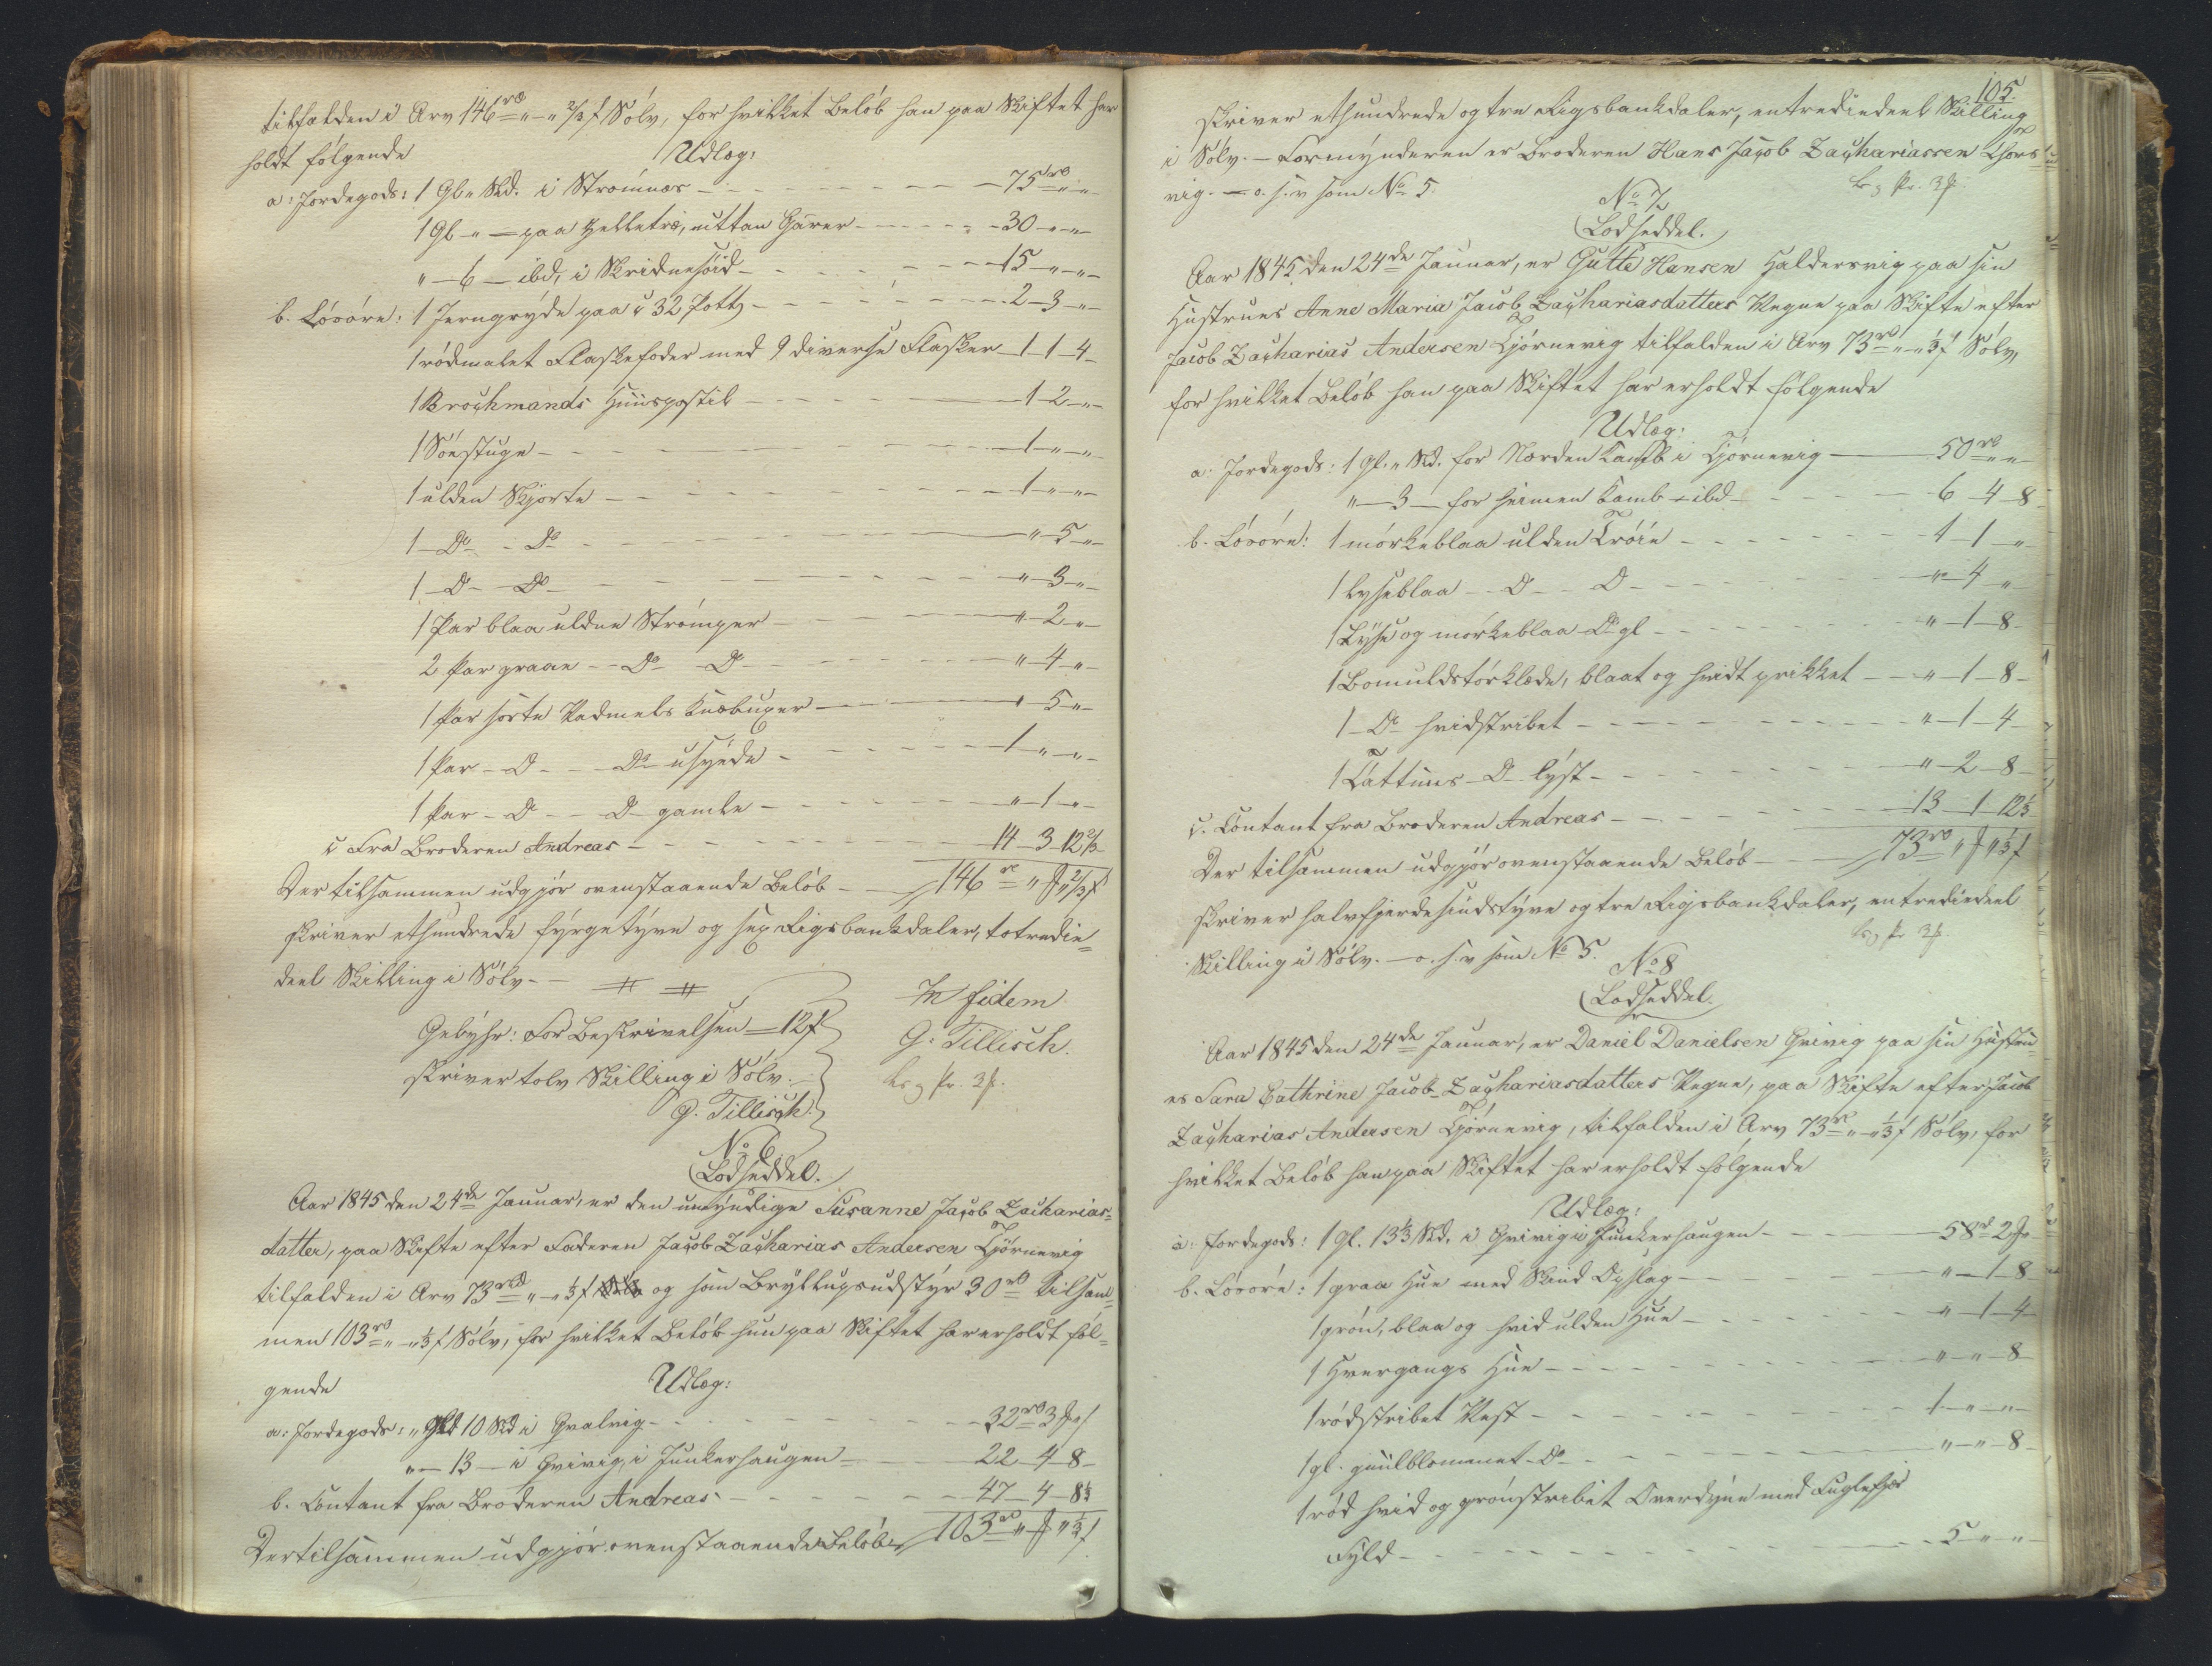 tilfalden i Arv 146 rbd „ – „ 2/3 f Sölv, for hvilket Belöb han paa Skiftet har
holdt fölgende Udlæg:
a: Jordegods: 1 Gl. „ Skd. i Strömnæs – 75 rbd „ „
1 Gl – „ – paa Selletræ, uttan Garer – 30 – „ – „
„ – 6 – ibd, i Skridnesöid – 15 – „ – „
b. Lösöre: 1 Jerngryde paa 32 Potter – 2 – 3 – „
1 rödmalet Flaskefoder med 9 diverse Flasker – 1 – 1 – 4
1 Brochmands Huuspostil – 1 – 2 – „
1 – „ – „
1 ulden Skjorte – 1 – „ – „
1 – Do – Do – „ – 5 – „
1 – Do – Do – „ – 3 – „
1 Par blaa uldne Strömper – „ – 2 – „
2 Par graae – Do – Do – „ – 4 – „
1 Par sorte Vadmels Knæbuxer – „ – 5 – „
1 Par – Do – Do usyede – 1 – „ – „
1 Par – Do – Do gamle – „ – 1 – „
c Fra Broderen Andreas – 14 – 3 – 12 2/3
Der tilsammen udgjör ovenstaaende Belöb – 146 rbd „ „ 2/3 f
skriver ethundrede fyrgetyve og sex Rigsbankdaler, totredie=
deel Skilling i Sölv –
In fidem
Gebyhr: For Beskrivelsen – 12 f
G. Tillisch.
skriver tolv Skilling i Sölv.
G. Tillisch.
No 6
Lodseddel.
Aar 1845 den 24de Januar, er den umyndige Susanne Jacob Zacharias=
datter, paa Skifte efter Faderen Jacob Zacharias Andersen Tjörnevig
tilfalden i Arv 73 rbd „ – „ 1/3 f og som Bryllupsudstyr 30 rbd tilsam=
men 103 rbd „ – „ 1/3 f Sölv, for hvilket Belöb hun paa Skiftet har erholdt föl=
gende Udlæg:
a: Jordegods: „ Gl 10 Skd i Qvalvig – 32 rbd 3
„ – 13 – i Qvivig, i Junkerhaugen – 22 – 4 – 8
b. Contant fra Broderen Andreas – 47 – 4 – 8 1/3
Der tilsammen udgjör ovenstaaende Belöb 103 rbd „ „ 1/3 f
105
skriver ethundrede og tre Rigsbankdaler, entrediedeel Skilling
i Sölv. – Formynderen er Broderen Hans Jacob Zachariassen Thors
vig. – o. s. v som No 5.
No 7
Lodseddel.
Aar 1845 den 24de Januar, er Gutte Hansen Haldersvig paa sin
Hustrues Anne Maria Jacob Zachariasdatters Vegne paa Skifte efter
Jacob Zacharias Andersen Tjörnevig tilfalden i Arv 73 rbd „ – „ 1/3 f Sölv,
for hvilket Belöb han paa Skiftet har erholdt fölgende
Udlæg:
a: Jordegods: 1 Gl. „ Skd. for Norden Kamb i Tjörnevig – 50 rbd „ „
„ – 3 – for heimen Kamb – ibd – 6 – 4 – 8
b. Lösöre: 1 mörkeblaa ulden Tröie – 1 – 1 – „
1 lyseblaa – Do – Do – „ – 4 – „
1 Lyse og mörkeblaa Do gl – „ – 1 – 8
1 Bomuldstörklæde, blaat og hvidt prikket – „ – 1 – 8
1 – Do hvidstribet – „ – 1 – 4
1 Cattuns – Do lyst – „ – 2 – 8
c. Contant fra Broderen Andreas – 13 – 1 – 12 1/3
Der tilsammen udgjör ovenstaaende Belöb – 73 rbd „ „ 1/3 f
skriver halvfjerdesindstyve og tre Rigsbankdaler, entrediedeel
Skilling i Sölv. – o. s. v som No 5.
No 8
Lodseddel.
Aar 1845 den 24de Januar, er Daniel Danielsen Qvivig paa sin Hustru
es Sara Cathrine Jacob Zachariasdatters Vegne, paa Skifte efter Jacob
Zacharias Andersen Tjörnevig, tilfalden i Arv 73 rbd „ – „ 1/3 f Sölv, for
hvilket Belöb han paa Skiftet har erholdt fölgende
Udlæg:
a: Jordegods: 1 Gl. 13 1/3 Skd. i Qvivig i Junkerhaugen – 58 rbd 2
b. Lösöre: 1 graa Hue med Skind Opslag – „ – 1 – 8
1 grön, blaa og hvid ulden Hue – „ – 1 – 4
1 Hvergangs Hue – „ – „ – 8
1 rödstribet Vest – 1 – „ – „
1 gl. guulblommet – Do – „ – „ – 8
1 röd hvid og grönstribet Overdyne med Fuglefjær
Fyld – 5 – „ – „